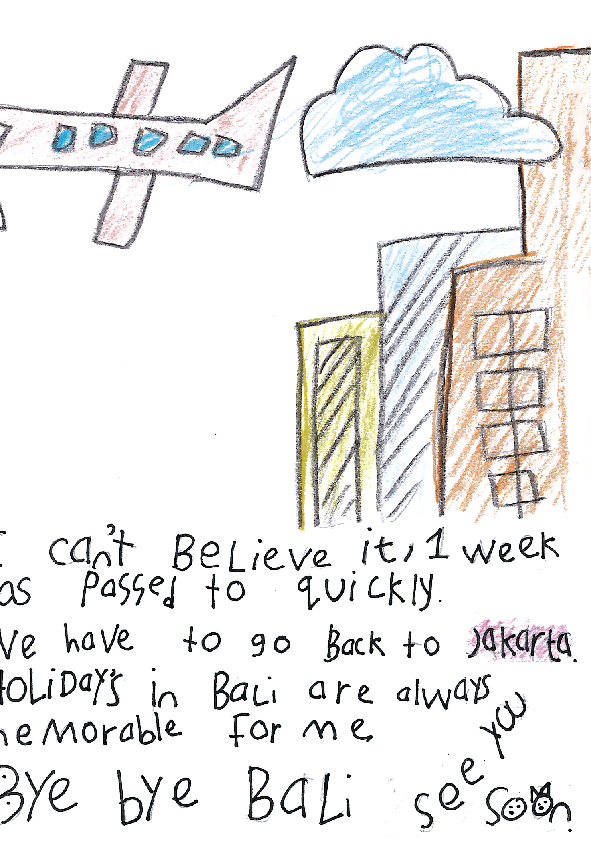 I can't BeLieve it, 1 week
as Passed to quickly.
We have to go Back to Jakarta.
HOLiDay's in BaLi are always
meMorable for me
Bye bye BaLi see you soon.